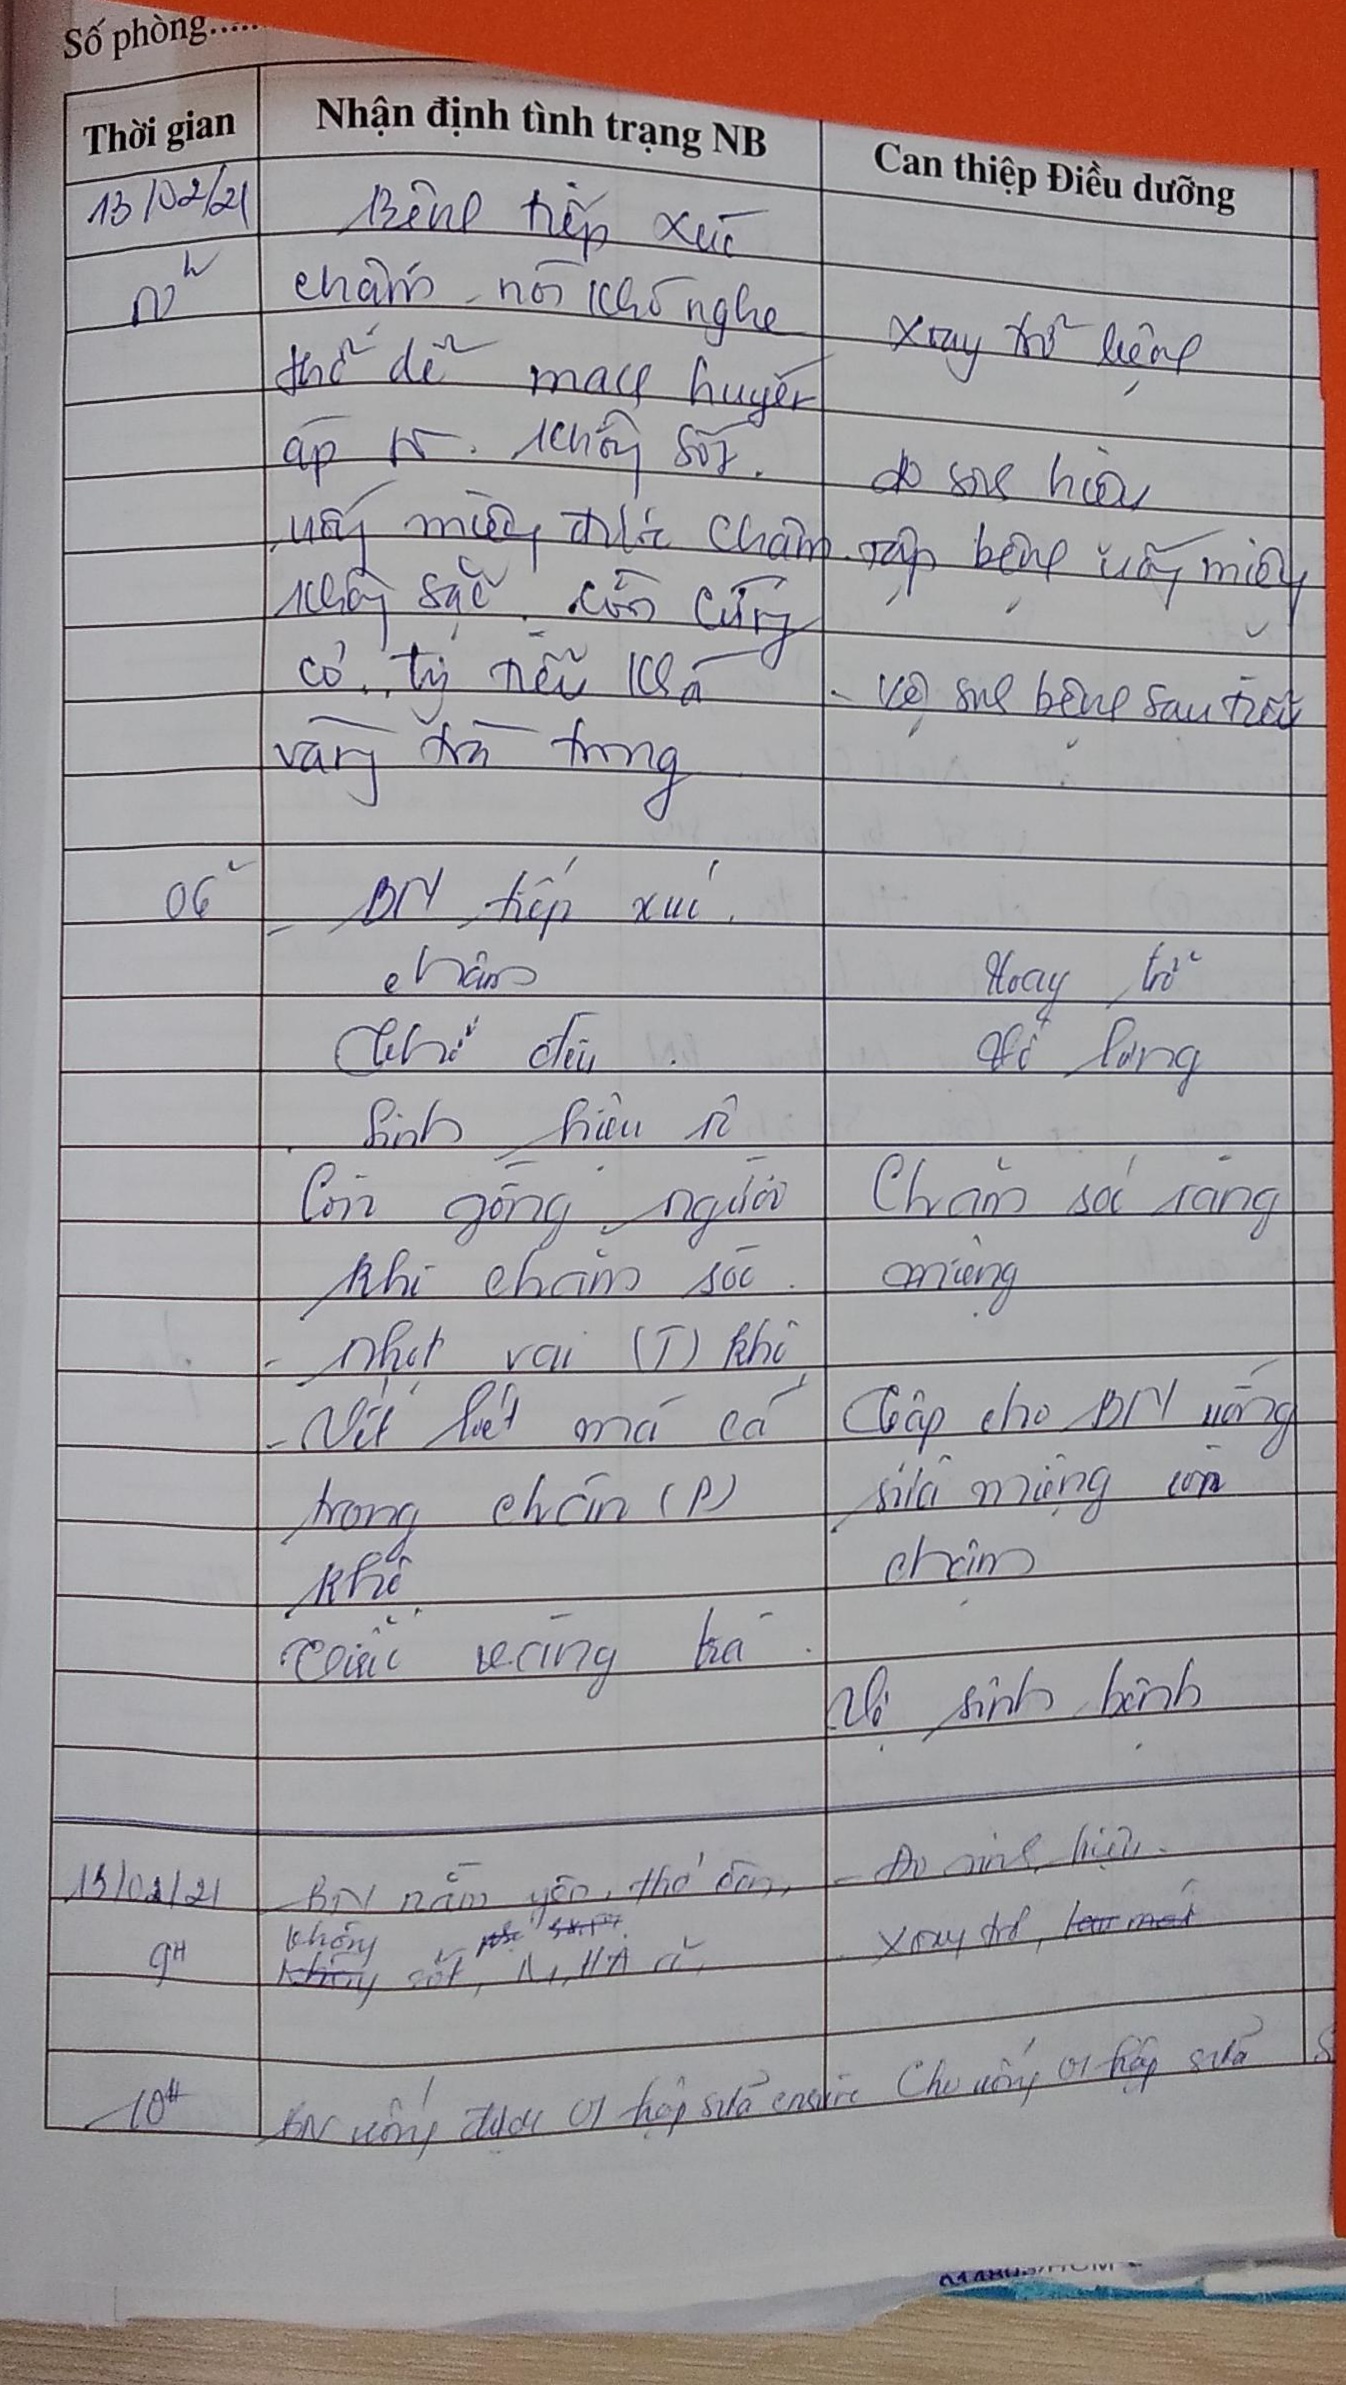 Số phòng.....
Thời gian
Nhận định tình trạng NB
Can thiệp Điều dưỡng
13/02/21
Bệnh tiếp xúc
chậm, nói khó nghe
Xoay trở bệnh
thở dễ mạch huyết
áp không sốt.
đo sinh hiệu
uống miệng được chậm
tập bệnh uống miệng
không sặc. còn cứng
cổ, tỉ
vàng trà trong
- Vệ sinh bệnh sau tiểu
06h
- BN tiếp xúc
chậm
Xoay trở
Thở đều.
Vỗ lưng
Sinh hiệu
Còn gồng người
Chăm sóc răng
khi chăm sóc.
miệng
- Nhọt vai (T) khô
- Vết loét má cá
Tập cho BN uống
trong chân (P)
sữa miệng còn
khô
chậm
vàng trà.
Vệ sinh bệnh
13/02/21
- BN nằm yên, thở đều,
- Đo sinh hiệu.
9H
không
sốt, M, HA ổn,
Xoay trở,
10H
BN uống được 01 hộp sữa ensure
Cho uống 01 hộp sữa